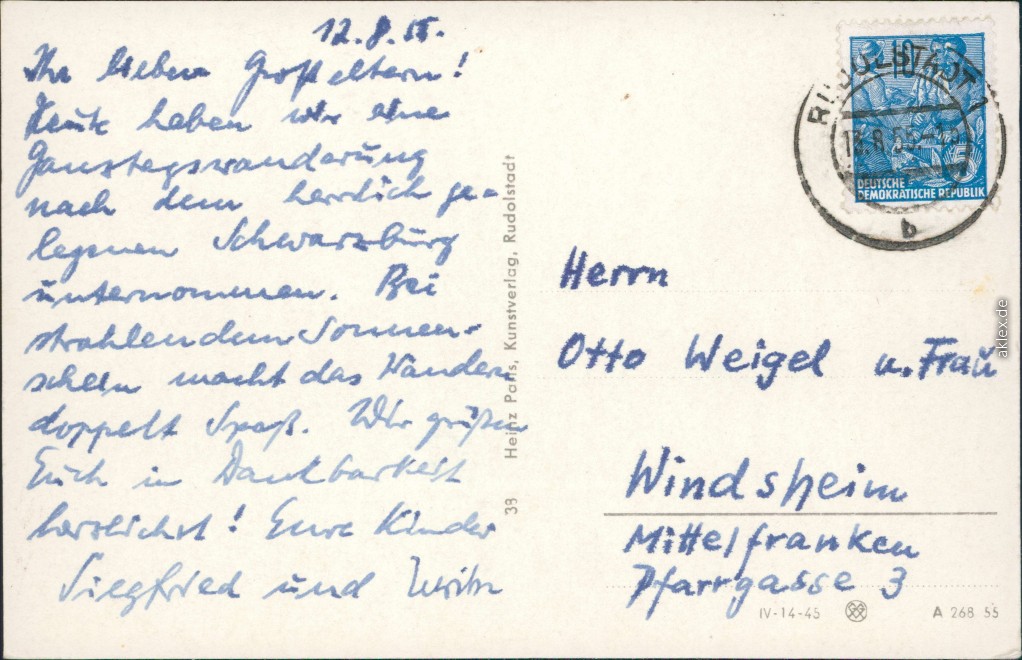 12.8.55.
Ihr lieben Großeltern!
Heute haben wir eine
Ganztagswanderung
nach dem herrlich ge-
legenen Schwarzburg
unternommen. Bei
strahlendem Sonnen-
schein macht das Wandern
doppelt Spaß. Wir grüßen
Euch in Dankbarkeit
herzlichst! Eure Kinder
Siegfried und
38 Heinz Paris, Kunstverlag, Rudolstadt
10
DEUTSCHE
DEMOKRATISCHE REPUBLIK
RUDOLSTADT 1
b
Herrn
Otto Weigel u. Frau
Windsheim
Mittelfranken
Pfarrgasse 3
IV-14-45
A 268 55
aklex.de